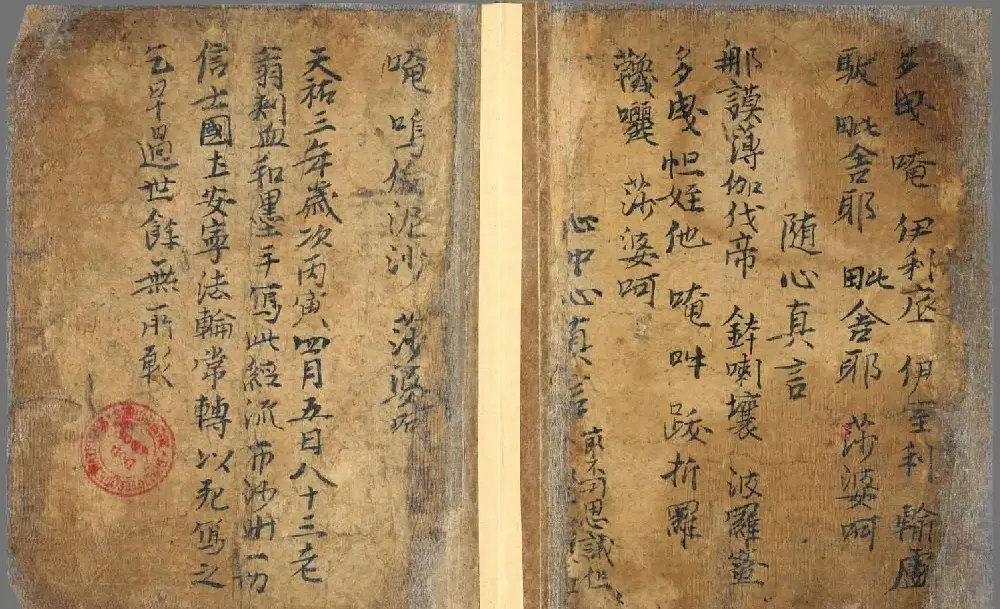 多曳 唵 伊利底 伊室利 輸盧
馱 毗舍耶 毗舍耶 莎婆呵
随心真言
那謨薄伽伐帝 鉢喇壤 波羅蜜
多曳 怛姪他 唵 吽 跋折羅
莎婆呵
心中心真言 不可思議
唵 嗚倫泥沙 莎婆呵
天祐三年歲次丙寅四月五日八十三老
翁刺血和墨手寫此經流布沙州一切
信士國土安寧法輪常轉以死寫之
乞早過世餘無所願